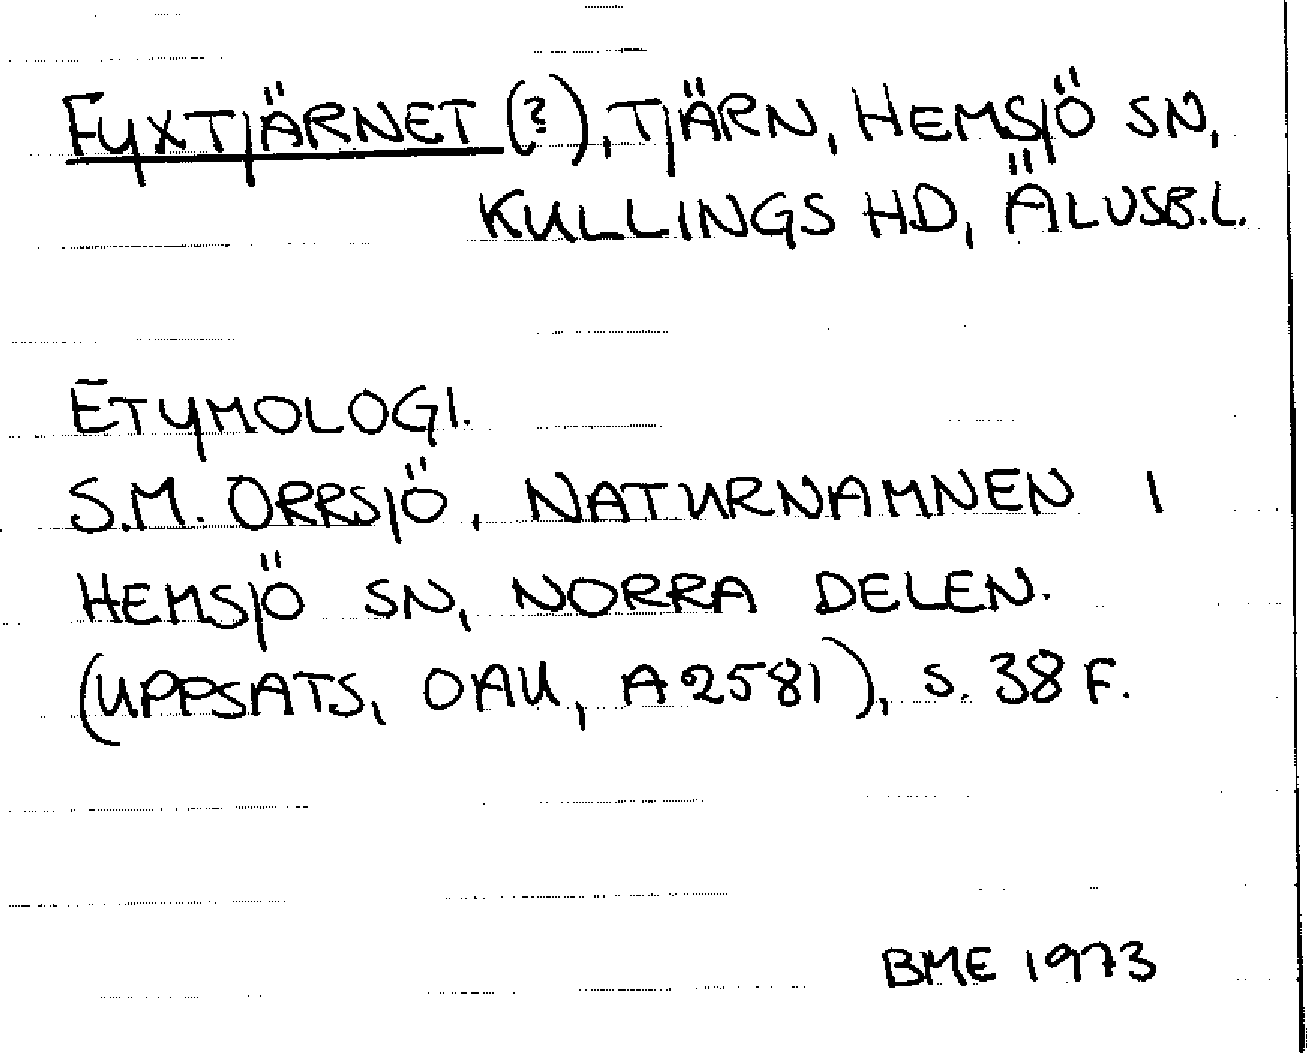 FYXTJÄRNET (?), TJÄRN, HEMSJÖ SN,
KULLINGS HD, ÄLVSB.L.
ETYMOLOGI.
S.M. ORRSJÖ, NATURNAMNEN I
HEMSJÖ SN, NORRA DELEN.
(UPPSATS, OAU, A2581), S. 38 F.
BME 1973